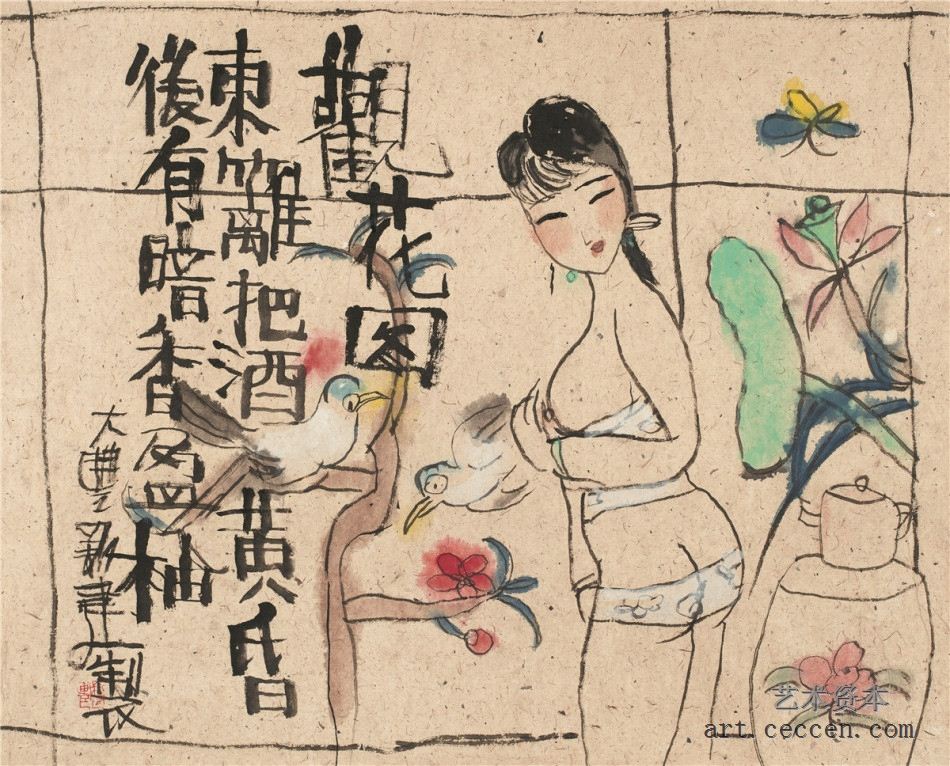 觀花図
東籬把酒黄昏
後有暗香盈柚
大豐新建製
艺术资本
art.ceccen.com